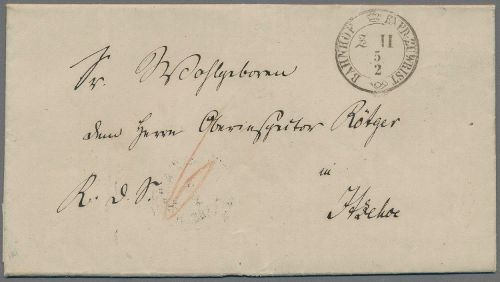 BAHNHOF EXP. Z. WRIST
II
5
2
Sr. Wohlgeboren
dem Herrn Oberinspector Rötger
in
R. d. S.
Itzehoe